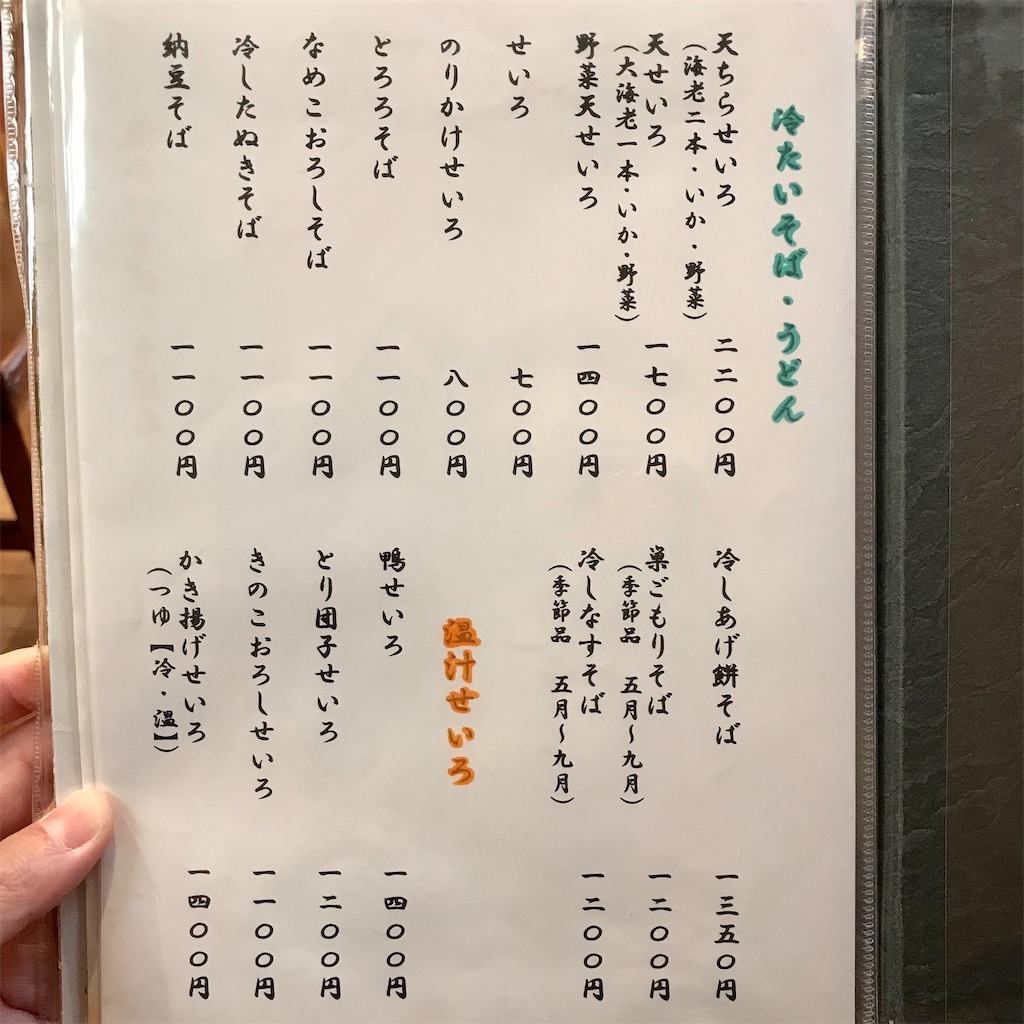 冷たいそば・うどん
天ちらせいろ
(海老二本・いか・野菜)
二二〇〇円
天せいろ
(大海老一本・いか・野菜)
一七〇〇円
野菜天せいろ
一四〇〇円
せいろ
七〇〇円
のりかけせいろ
八〇〇円
とろろそば
一一〇〇円
なめこおろしそば
一一〇〇円
冷したぬきそば
一一〇〇円
納豆そば
一一〇〇円
冷しあげ餅そば
一三五〇円
巣ごもりそば
(季節品 五月～九月)
一二〇〇円
冷しなすそば
(季節品 五月～九月)
一二〇〇円
温汁せいろ
鴨せいろ
一四〇〇円
とり団子せいろ
一二〇〇円
きのこおろしせいろ
一一〇〇円
かき揚げせいろ
(つゆ【冷・温】)
一四〇〇円